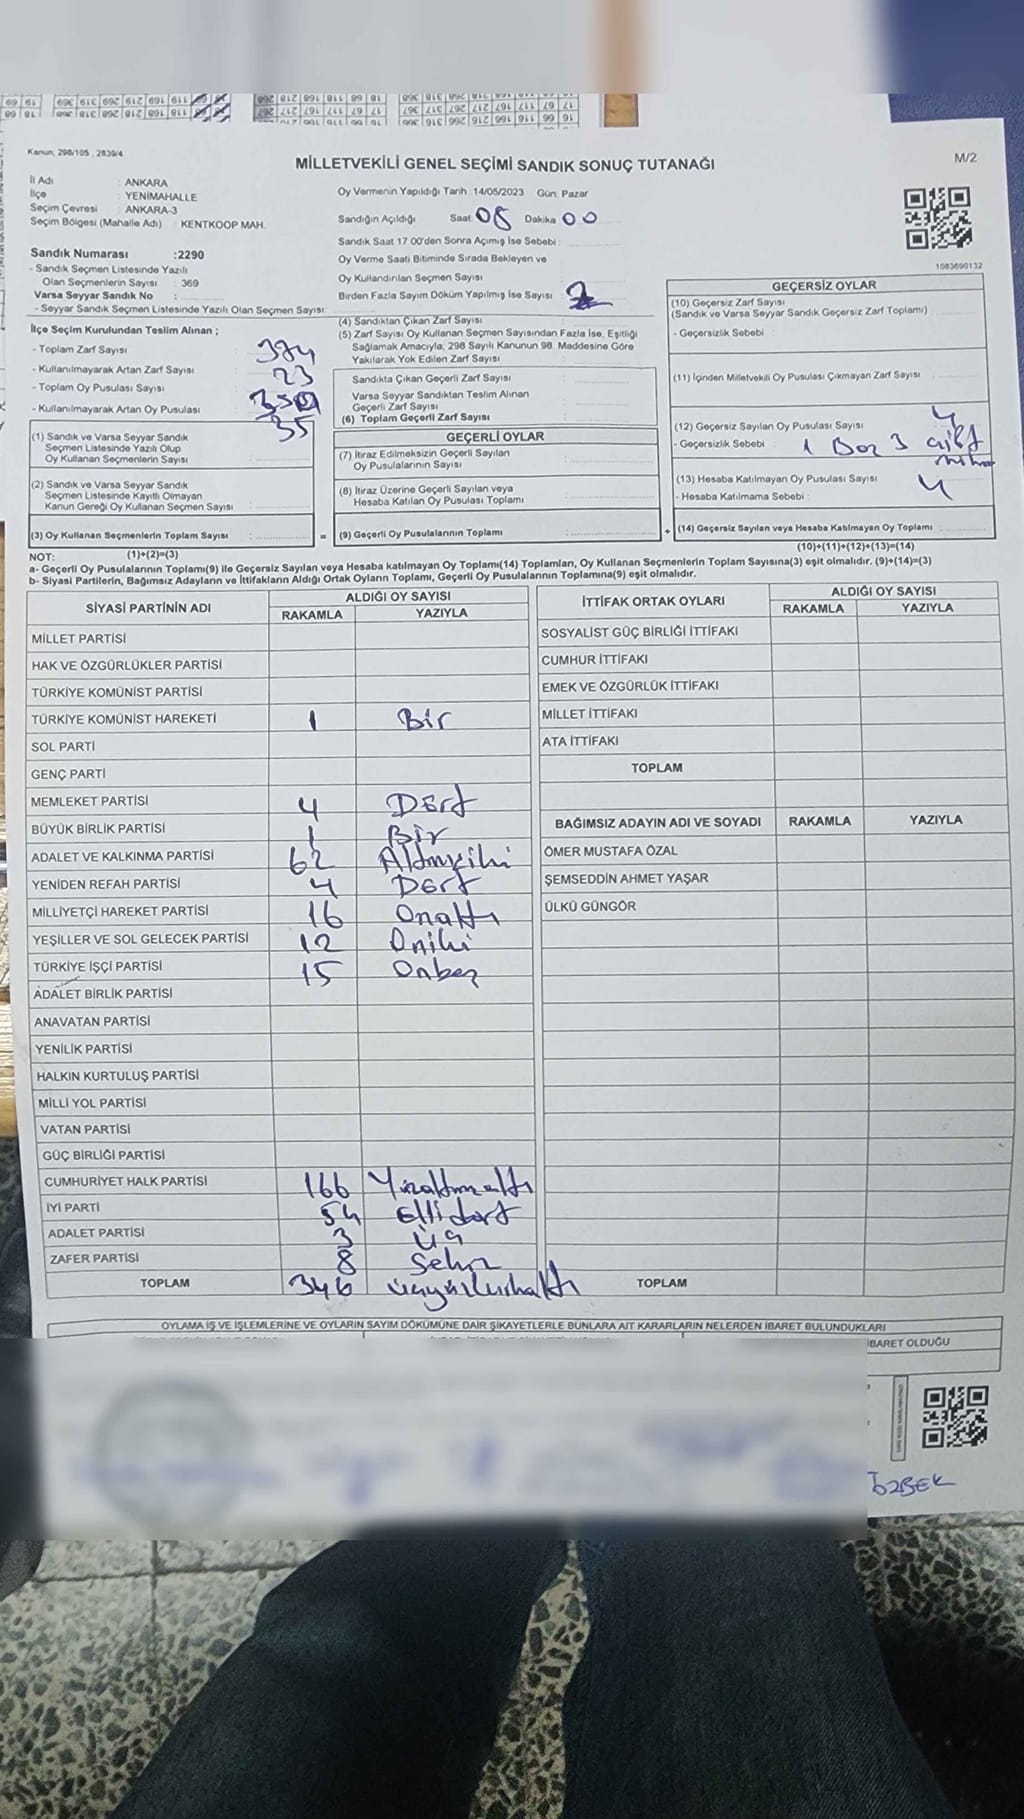 Kanun, 298/105 , 2839/4
MİLLETVEKİLİ GENEL SEÇİMİ SANDIK SONUÇ TUTANAĞI
M/2
İl Adı : ANKARA
İlçe : YENİMAHALLE
Seçim Çevresi : ANKARA-3
Seçim Bölgesi (Mahalle Adı) : KENTKOOP MAH.
Oy Vermenin Yapıldığı Tarih :14/05/2023 Gün: Pazar
Sandığın Açıldığı Saat: 08 Dakika 00
Sandık Saat 17 00'den Sonra Açımış İse Sebebi :
Oy Verme Saati Bitiminde Sırada Bekleyen ve
Oy Kullandırılan Seçmen Sayısı
Birden Fazla Sayım Döküm Yapılmış İse Sayısı
1083690132
Sandık Numarası :2290
- Sandık Seçmen Listesinde Yazılı
Olan Seçmenlerin Sayısı : 369
Varsa Seyyar Sandık No :
- Seyyar Sandık Seçmen Listesinde Yazılı Olan Seçmen Sayısı:
İlçe Seçim Kurulundan Teslim Alınan ;
- Toplam Zarf Sayısı : 374
- Kullanılmayarak Artan Zarf Sayısı : 23
- Toplam Oy Pusulası Sayısı :
- Kullanılmayarak Artan Oy Pusulası : 35
(1) Sandık ve Varsa Seyyar Sandık
Seçmen Listesinde Yazılı Olup
Oy Kullanan Seçmenlerin Sayısı :
(2) Sandık ve Varsa Seyyar Sandık
Seçmen Listesinde Kayıtlı Olmayan
Kanun Gereği Oy Kullanan Seçmen Sayısı :
(3) Oy Kullanan Seçmenlerin Toplam Sayısı :
(4) Sandıktan Çıkan Zarf Sayısı :
(5) Zarf Sayısı Oy Kullanan Seçmen Sayısından Fazla İse, Eşitliği
Sağlamak Amacıyla; 298 Sayılı Kanunun 98. Maddesine Göre
Yakılarak Yok Edilen Zarf Sayısı :
Sandıkta Çıkan Geçerli Zarf Sayısı :
Varsa Seyyar Sandıktan Teslim Alınan
Geçerli Zarf Sayısı
(6) Toplam Geçerli Zarf Sayısı :
GEÇERLİ OYLAR
(7) İtiraz Edilmeksizin Geçerli Sayılan
Oy Pusulalarının Sayısı :
(8) İtiraz Üzerine Geçerli Sayılan veya
Hesaba Katılan Oy Pusulası Toplamı :
= (9) Geçerli Oy Pusulalarının Toplamı :
GEÇERSİZ OYLAR
(10) Geçersiz Zarf Sayısı
(Sandık ve Varsa Seyyar Sandık Geçersiz Zarf Toplamı) :
- Geçersizlik Sebebi :
(11) İçinden Milletvekili Oy Pusulası Çıkmayan Zarf Sayısı :
(12) Geçersiz Sayılan Oy Pusulası Sayısı : 4
- Geçersizlik Sebebi : 1 Boş 3 çift
mühür
(13) Hesaba Katılmayan Oy Pusulası Sayısı : 4
- Hesaba Katılmama Sebebi :
+ (14) Geçersiz Sayılan veya Hesaba Katılmayan Oy Toplamı :
NOT: (1)+(2)=(3) (10)+(11)+(12)+(13)=(14)
a- Geçerli Oy Pusulalarının Toplamı(9) ile Geçersiz Sayılan veya Hesaba katılmayan Oy Toplamı(14) Toplamları, Oy Kullanan Seçmenlerin Toplam Sayısına(3) eşit olmalıdır. (9)+(14)=(3)
b- Siyasi Partilerin, Bağımsız Adayların ve İttifakların Aldığı Ortak Oyların Toplamı, Geçerli Oy Pusulalarının Toplamına(9) eşit olmalıdır.
SİYASİ PARTİNİN ADI ALDIĞI OY SAYISI
RAKAMLA YAZIYLA
MİLLET PARTİSİ
HAK VE ÖZGÜRLÜKLER PARTİSİ
TÜRKİYE KOMÜNİST PARTİSİ
TÜRKİYE KOMÜNİST HAREKETİ 1 Bir
SOL PARTİ
GENÇ PARTİ
MEMLEKET PARTİSİ 4 Dört
BÜYÜK BİRLİK PARTİSİ 1 Bir
ADALET VE KALKINMA PARTİSİ 62 Altmışiki
YENİDEN REFAH PARTİSİ 4 Dört
MİLLİYETÇİ HAREKET PARTİSİ 16 Onaltı
YEŞİLLER VE SOL GELECEK PARTİSİ 12 Oniki
TÜRKİYE İŞÇİ PARTİSİ 15 Onbeş
ADALET BİRLİK PARTİSİ
ANAVATAN PARTİSİ
YENİLİK PARTİSİ
HALKIN KURTULUŞ PARTİSİ
MİLLİ YOL PARTİSİ
VATAN PARTİSİ
GÜÇ BİRLİĞİ PARTİSİ
CUMHURİYET HALK PARTİSİ 166 Yüzaltmışaltı
İYİ PARTİ 54 Ellidört
ADALET PARTİSİ 3 Üç
ZAFER PARTİSİ 8 Sekiz
TOPLAM 346 üçyüzkırkaltı
İTTİFAK ORTAK OYLARI ALDIĞI OY SAYISI
RAKAMLA YAZIYLA
SOSYALİST GÜÇ BİRLİĞİ İTTİFAKI
CUMHUR İTTİFAKI
EMEK VE ÖZGÜRLÜK İTTİFAKI
MİLLET İTTİFAKI
ATA İTTİFAKI
TOPLAM
BAĞIMSIZ ADAYIN ADI VE SOYADI RAKAMLA YAZIYLA
ÖMER MUSTAFA ÖZAL
ŞEMSEDDİN AHMET YAŞAR
ÜLKÜ GÜNGÖR
TOPLAM
OYLAMA İŞ VE İŞLEMLERİNE VE OYLARIN SAYIM DÖKÜMÜNE DAİR ŞİKAYETLERLE BUNLARA AİT KARARLARIN NELERDEN İBARET BULUNDUKLARI
İBARET OLDUĞU
ÖZBEK